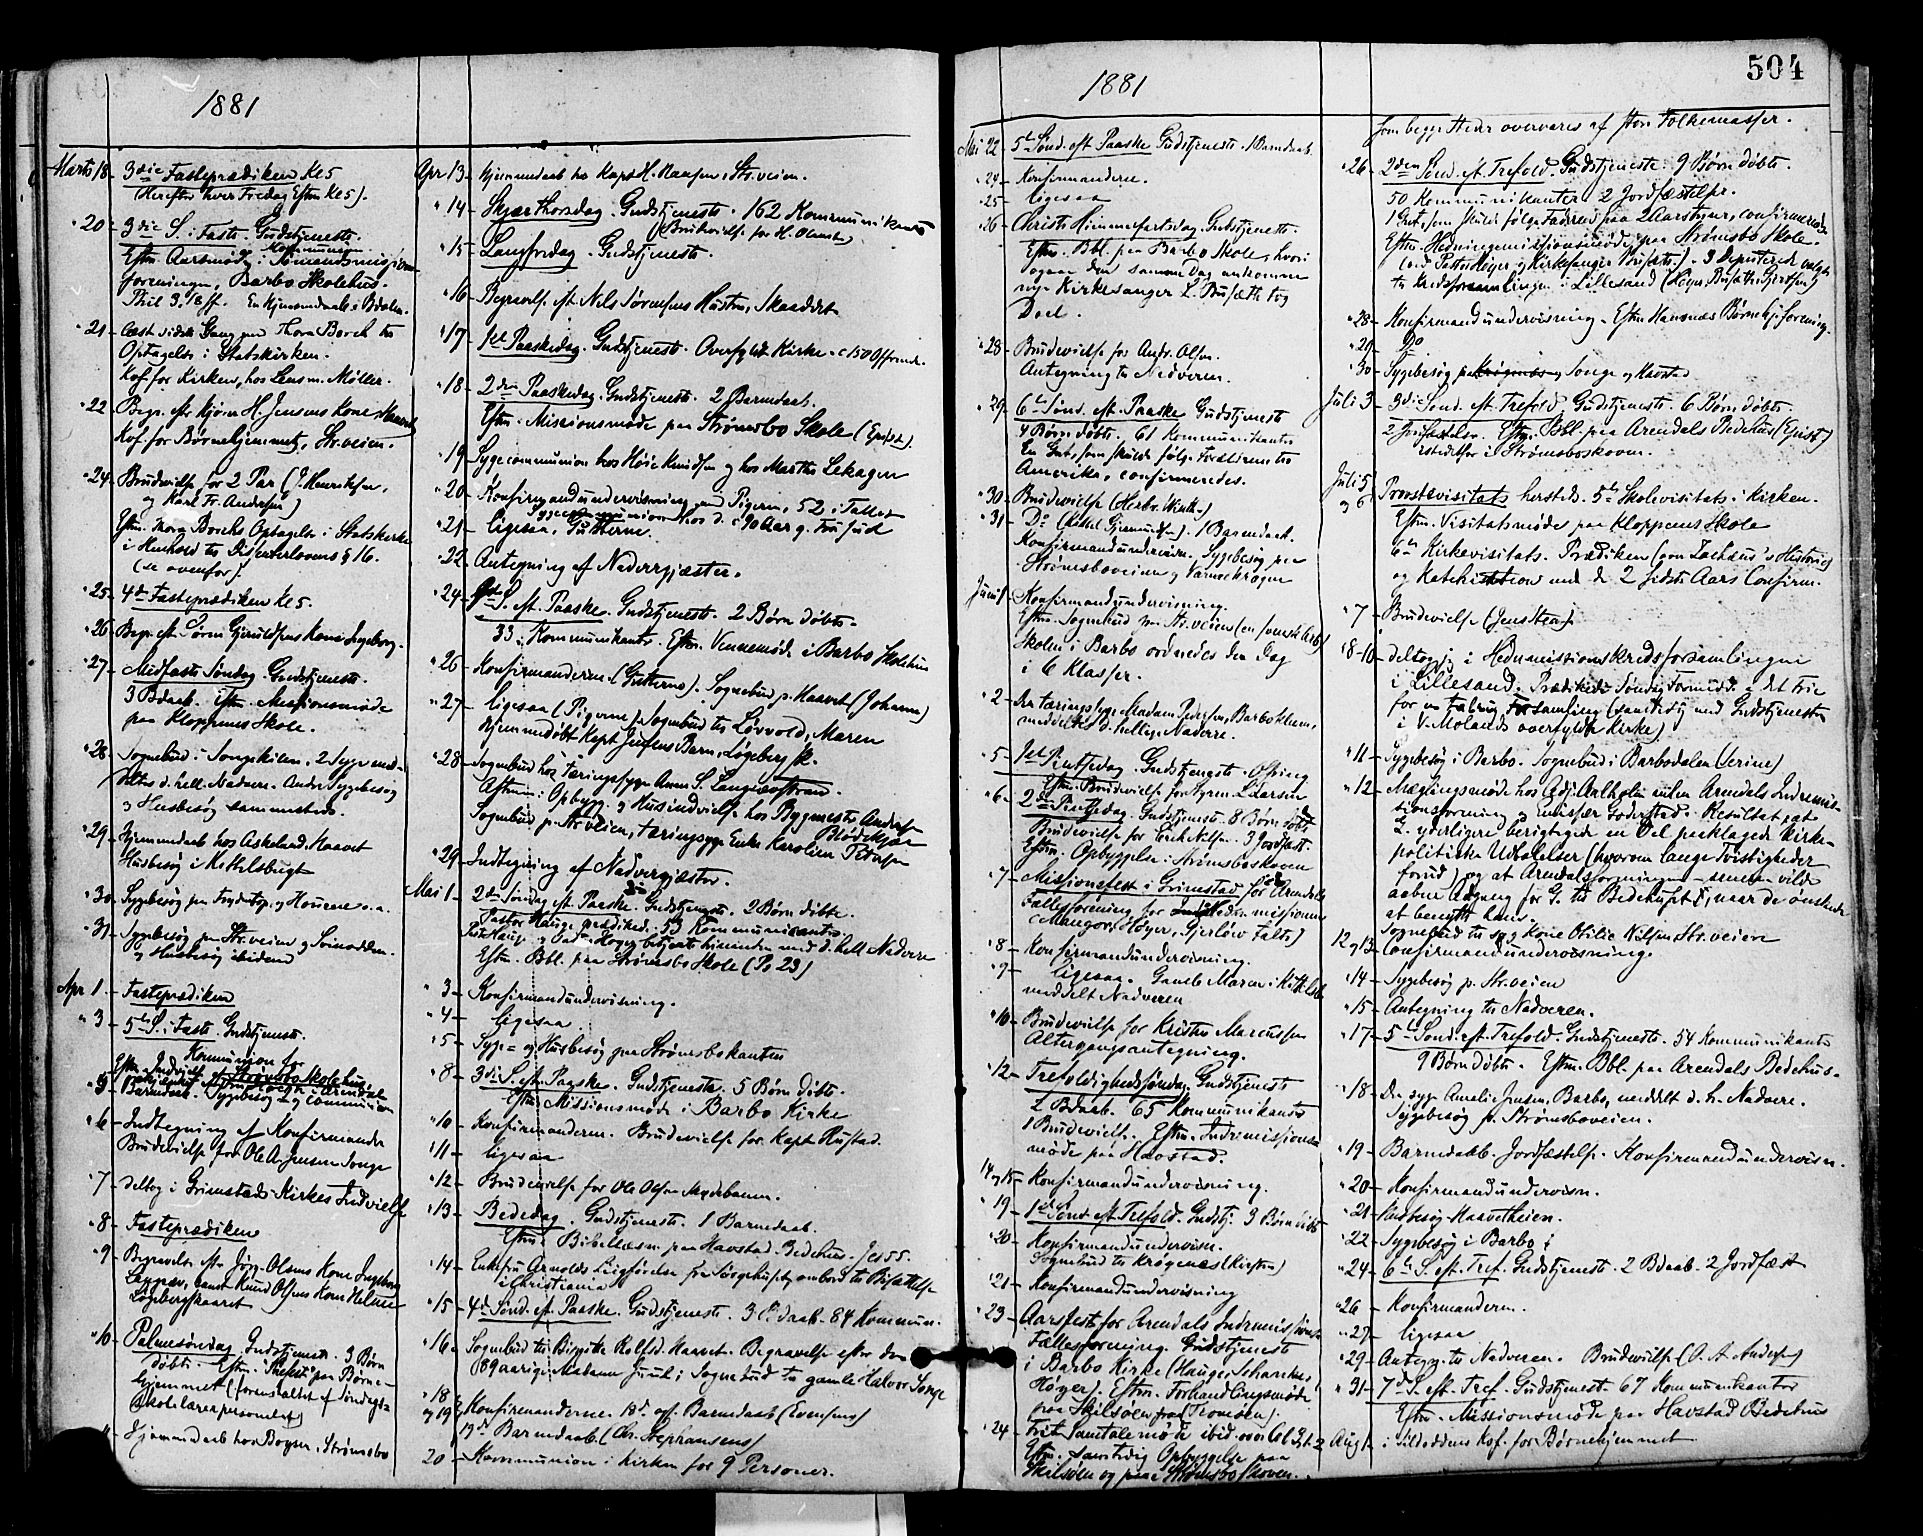 504
1881
Marts 18 3die Fasteprædiken Kl 5
(Herefter hver Fredag Eftm Kl 5).
" 20 3die S. i Faste. Gudstjeneste.
Eftm Aarsmøde i Sømandsmissions
foreningen, Barbo Skolehus.
" 21
Optagelse i Statskirken.
Kof. for Kirken, hos Lensm. Møller.
" 22 Begr. eftr Bjørn H. Jensens Kone, Haavet
Kof. for Børnehjemmet, Str.veien.
" 24 Brudevielse for 2 Par (J. Henriksen,
og Karl Fr. Andersen)
Eftm. Thora Borchs Optagelse i Statskirke
i Henhold til Dissenterlovens § 16.
(se ovenfor).
" 25 4de Fasteprædiken Kl 5.
" 26 Begr. eft. Søren Gjeruldsens Kone Ingeborg.
" 27 Midfaste Søndag. Gudstjeneste.
3 Bdaab. Eftm. Missionsmøde
paa Kloppens Skole.
" 28 Sognebud i Songekilen. 2 Syge med-
deltes d. hell. Nadvere. Andre Sygebesøg
og Husbesøg sammesteds.
" 29 Hjemmedaab hos Askeland, Haavet
Husbesøg i Kittelsbugt
" 30 Sygebesøg paa
" 31 Sygebesøg paa Str.veien og Svinodden.
og Husbesøg ibidem
Apr 1 Fasteprædiken
" 3 5te S. i Faste. Gudstjeneste.
Kommunion for
" 5 Barnedaab. Sygebesøg og communion
" 6 Indtegning af Konfirmander
Brudevielse for Ole A. Jensen Songe
" 7 deltog i Grimstads Kirkes Indvielse
" 8 Fasteprædiken
" 9 Begravelse eftr Jørg. Olsens Kone Ingeborg
samt Knud Olsens Kone Helene
Løgebergskaaret
" 10 Palmesøndag Gudstjeneste. 3 Børn
døbte. Eftm. paa Børne-
hjemmet (foranstaltet af Søndags-
skolelærerpersonalet)
" 11 Hjemmedaab hos Boysen, Strømsbo
Apr 13 Hjemmedaab hos Kapt H. Hansen, Str.veien.
" 14 Skjærthorsdag. Gudstjeneste. 162 Kommunikanter
(Brudevielse for H. Olsen)
" 15 Langfredag. Gudstjeneste.
" 16 Begravelse eft. Nils Sørensens Hustru, Skaaret
" 17 1ste Paaskedag. Gudstjeneste. Overfyldt Kirke. c 1500
" 18 2den Paaskedag. Gudstjeneste. 2 Barnedaab.
Eftm. Missionsmøde paa Strømsbo Skole
" 19 Sygecommunion hos Høie Knudsen og hos Marthe Lekagen
" 20 Konfirmandundervisning med Pigerne, 52 i Tallet
Sygecommunion hos d. c 90 Aar g. Fru Juul
" 21 ligesaa, Gutterne.
" 22 Antegning af Nadvergjæster.
" 24 1ste S. eft. Paaske. Gudstjeneste. 2 Børn døbte.
33 Kommunikanter. Eftm. Vennemøde i Barbo Skolehus
" 26 Konfirmanderne (Gutterne). Sognebud p. Haavet (Johanne)
" 27 ligesaa (Pigerne). Sognebud til Løvvold, Maren
Hjemmedøbt Kapt Jensens Barn, Løgeberg sk.
" 28 Sognebud hos tæringssyge Anne S. Langsæstrand.
Aftenen: Opbygg. og Husindvielse hos Bygmester Andersen
Blødekjær
Sognebud p. Str.veien, tæringssyge Enke Karoline Petersen
" 29 Indtegning af Nadvergjæster.
Mai 1 2den Søndag eft. Paaske. Gudstjeneste. 2 Børn døbte.
Pastor Hauge prædiked. 53 Kommunikanter
Past Hauge og Pastor Høyer betjente hinanden med d. hell Nadvere
Eftm. Bbl. paa Strømsbo Skole (Ps 23)
" 3 Konfirmandundervisning.
" 4 ligesaa
" 5 Syge- og Husbesøg paa Strømsbokanten
" 8 3die S. eft. Paaske. Gudstjeneste. 5 Børn døbte.
Eftm Missionsmøde i Barbo Kirke
" 10 Konfirmanderne. Brudevielse for Kapt Hustad.
" 11 ligesaa
" 12 Brudevielse for Ole Olsen Myrebaaen.
" 13 Bededag. Gudstjeneste. 1 Barnedaab.
Eftm. Bibellæsn. paa Havstad Bedehus. Jes 55.
" 14 Enkefru Arnolds Liigførelse fra Sørgehuset, ombord til Bisættelse
i Christiania
" 15 4de Sønd. eft. Paaske. Gudstjeneste. 3 Bdaab. 84 Kommun.
" 16 Sognebud til Birgitte Rolfsd. Haavet. Begravelse efter den
89aarige Madame Juul; Sognebud til gamle Halvor Songe
" 18 og 19 Konfirmanderne. 18de ogs. Barnedaab (Evensens)
19de Barnedaab (Chr. Stephansens)
20 Kommunion i Kirken for 9 Personer.
1881
Mai 22 5te Sønd. eft. Paaske Gudstjeneste. 1 Barnedaab.
" 24 Konfirmanderne.
" 25 ligesaa
" 26 Christi Himmelfartsdag. Gudstjeneste.
Eftm. Bbl. paa Barbo Skole, hvori
ogsaa den samme Dag ankomne
nye Kirkesanger L. Busæth tog
Deel.
" 28 Brudevielse for Andr. Olsen.
Antegning til Nadveren.
" 29 6te Sønd. eft. Paaske Gudstjeneste
4 Børn døbte. 61 Kommunikanter
En Gut, som skulde følge Forældrene til
Amerika, confirmeredes.
" 30 Brudevielse
" 31 Do 1 Barnedaab.
Konfirmandundervisn. Sygebesøg paa
Strømsboveien og Varnockragen
Juni 1 Konfirmandundervisning.
Eftm. Sognebud p. Str.veien
Skolen i Barbo ordnedes den Dag
i 6 Klasser.
" 2 Den tæringssyge Madam Pedersen, Barbokleven,
meddeltes d. hellige Nadvere.
" 5 1ste Pintsedag. Gudstjeneste. Offring
Eftm. Brudevielse for Styrm. L. Larsen
" 6 2den Pintsedag. Gudstjeneste. 8 Børn døbte
Brudevielse for Erik Nilsen. 3 Jordfæst.
Eftm. Opbyggelse i Strømsboskoven
" 7 Missionsfest i Grimstad for Arendals
Fællesforening for Hedn.missionen
(Mangor, Høyer, Gjerløw talte)
" 8 Konfirmandundervisning.
" 9 ligesaa. Gamle Maren i Kittelsb.
meddelt Nadveren
" 10 Brudevielse for Kristen Marcussen
Altergangsantegning.
" 12 Trefoldighedssøndag. Gudstjeneste
2 Bdaab. 65 Kommunikanter
1 Brudevielse. Eftm. Indremissions-
møde paa Havstad.
14 og 15 Konfirmandundervisning.
" 19 1ste Sønd. eft. Trefold. Gudstj. 3 Børn døbte
" 20 Konfirmandundervisn.
Sognebud til Krøgenes (Kirsten)
" 21 Konfirmandundervisning
" 23 Aarsfest for Arendals Indremissions
Fællesforening. Gudstjeneste
i Barbo Kirke (Hauge, Scharenke,
Høyer). Eftm. Forhandlingsmøde
paa Skilsøen (Tromøen).
" 24 Frit Samtalemøde ibid.
Eftm. samtidig Opbyggelse paa
Skilsøen og paa Strømsbo Skoven.
som begge Steder overvares af store Folkemasser.
" 26 2den Sønd. eft. Trefold. Gudstjeneste. 9 Børn døbte.
50 Kommunikanter 2 Jordfæstelser.
1 Gut, som skulde følge Faderen paa 2 Aars Reise, confirmerede
Eftm. Hedningemissionsmøde paa Strømsbo Skole.
(ved Pastor Høyer og Kirkesanger Busæth). 3 Deputerede valgte
til Kredsforsamlingen i Lillesand
" 28 Konfirmandundervisning. Eftm Havsnæs Børnehj.forening.
" 29 Do
" 30 Sygebesøg paa Songe og Havstad
Juli 3 3die Sønd. eft. Trefold Gudstjeneste. 6 Børn døbte.
2 Jordfæstelser. Eftm. Bbl. paa Arendals Bedehus
istedetfor i Strømsboskoven.
Juli 5 og 6 Provstevisitats hersteds. 5te Skolevisitats i Kirken.
Eftm. Visitatsmøde paa Kloppens Skole
6te Kirkevisitats. Prædiken (om Zachæus's Historie)
og Katechisation med de 2 sidste Aars Confirm.
" 7 Brudevielse
" 8-10 deltog jeg i Hedn.missionskredsforsamlingen
i Lillesand. Prædikede Søndag Formidd. i det Frie
for en talrig Forsamling (samtidig med Gudstjenesten
i V. Molands overfyldte Kirke)
" 11 Sygebesøg i Barbo. Sognebud i Barbodalen (Serine)
" 12 Mæglingsmøde hos Adj. Aalholm mellem Arendals Indremis-
sionsforening og Emissær Goderstad. Resultat, at
G. yderligere berigtigede en Del paaklagede kirke-
politiske Udtalelser (hvorom lange Tvistigheder
forud) og at Arendalsforeningen senere vilde
aabne Adgang for G. til Bedehuset, naar de ønskede
at benytte ham.
Sognebud til syg Kone Otilie Nilsen, Str.veien
12 og 13 Confirmandundervisning.
" 14 Sygebesøg p. Str.veien
" 15 Antegning til Nadveren.
" 17 5te Sønd. eft. Trefold. Gudstjeneste. 54 Kommunikanter
9 Børn døbte. Eftm. Bbl. paa Arendals Bedehus.
" 18 Den syge Amelie Jensen, Barbo, meddelt d. h. Nadvere.
Sygebesøg p. Strømsboveien.
" 19 Barnedaab. Jordfæstelse. Konfirmandundervisn.
" 20 Konfirmandundervisn.
" 21 Husbesøg Haavetheien.
" 22 Sygebesøg i Barbo
" 24 6te S. eft. Tref. Gudstjeneste. 2 Bdaab. 2 Jordfæst
" 26 Konfirmanderne.
" 27 ligesaa
" 29 Antegn. til Nadveren. Brudevielse (O. A. Andersen)
" 31 7de S. eft. Tref. Gudstjeneste. 67 Kommunikanter
Eftm. Missionsmøde paa Havstad Bedehus
Aug 1 i Sildodden Kof. for Børnehjemmet